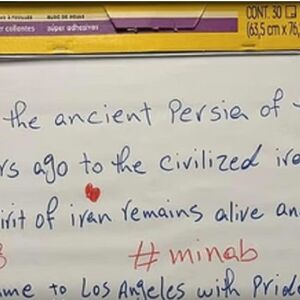 BLOC DE HOJAS
CONT. 30
r collantes súper adhesivas (63,5 cm x 76,
the ancient Persia of
rs ago to the civilized ira
irit of iran remains alive an
#minab
me to Los Angeles with Prid